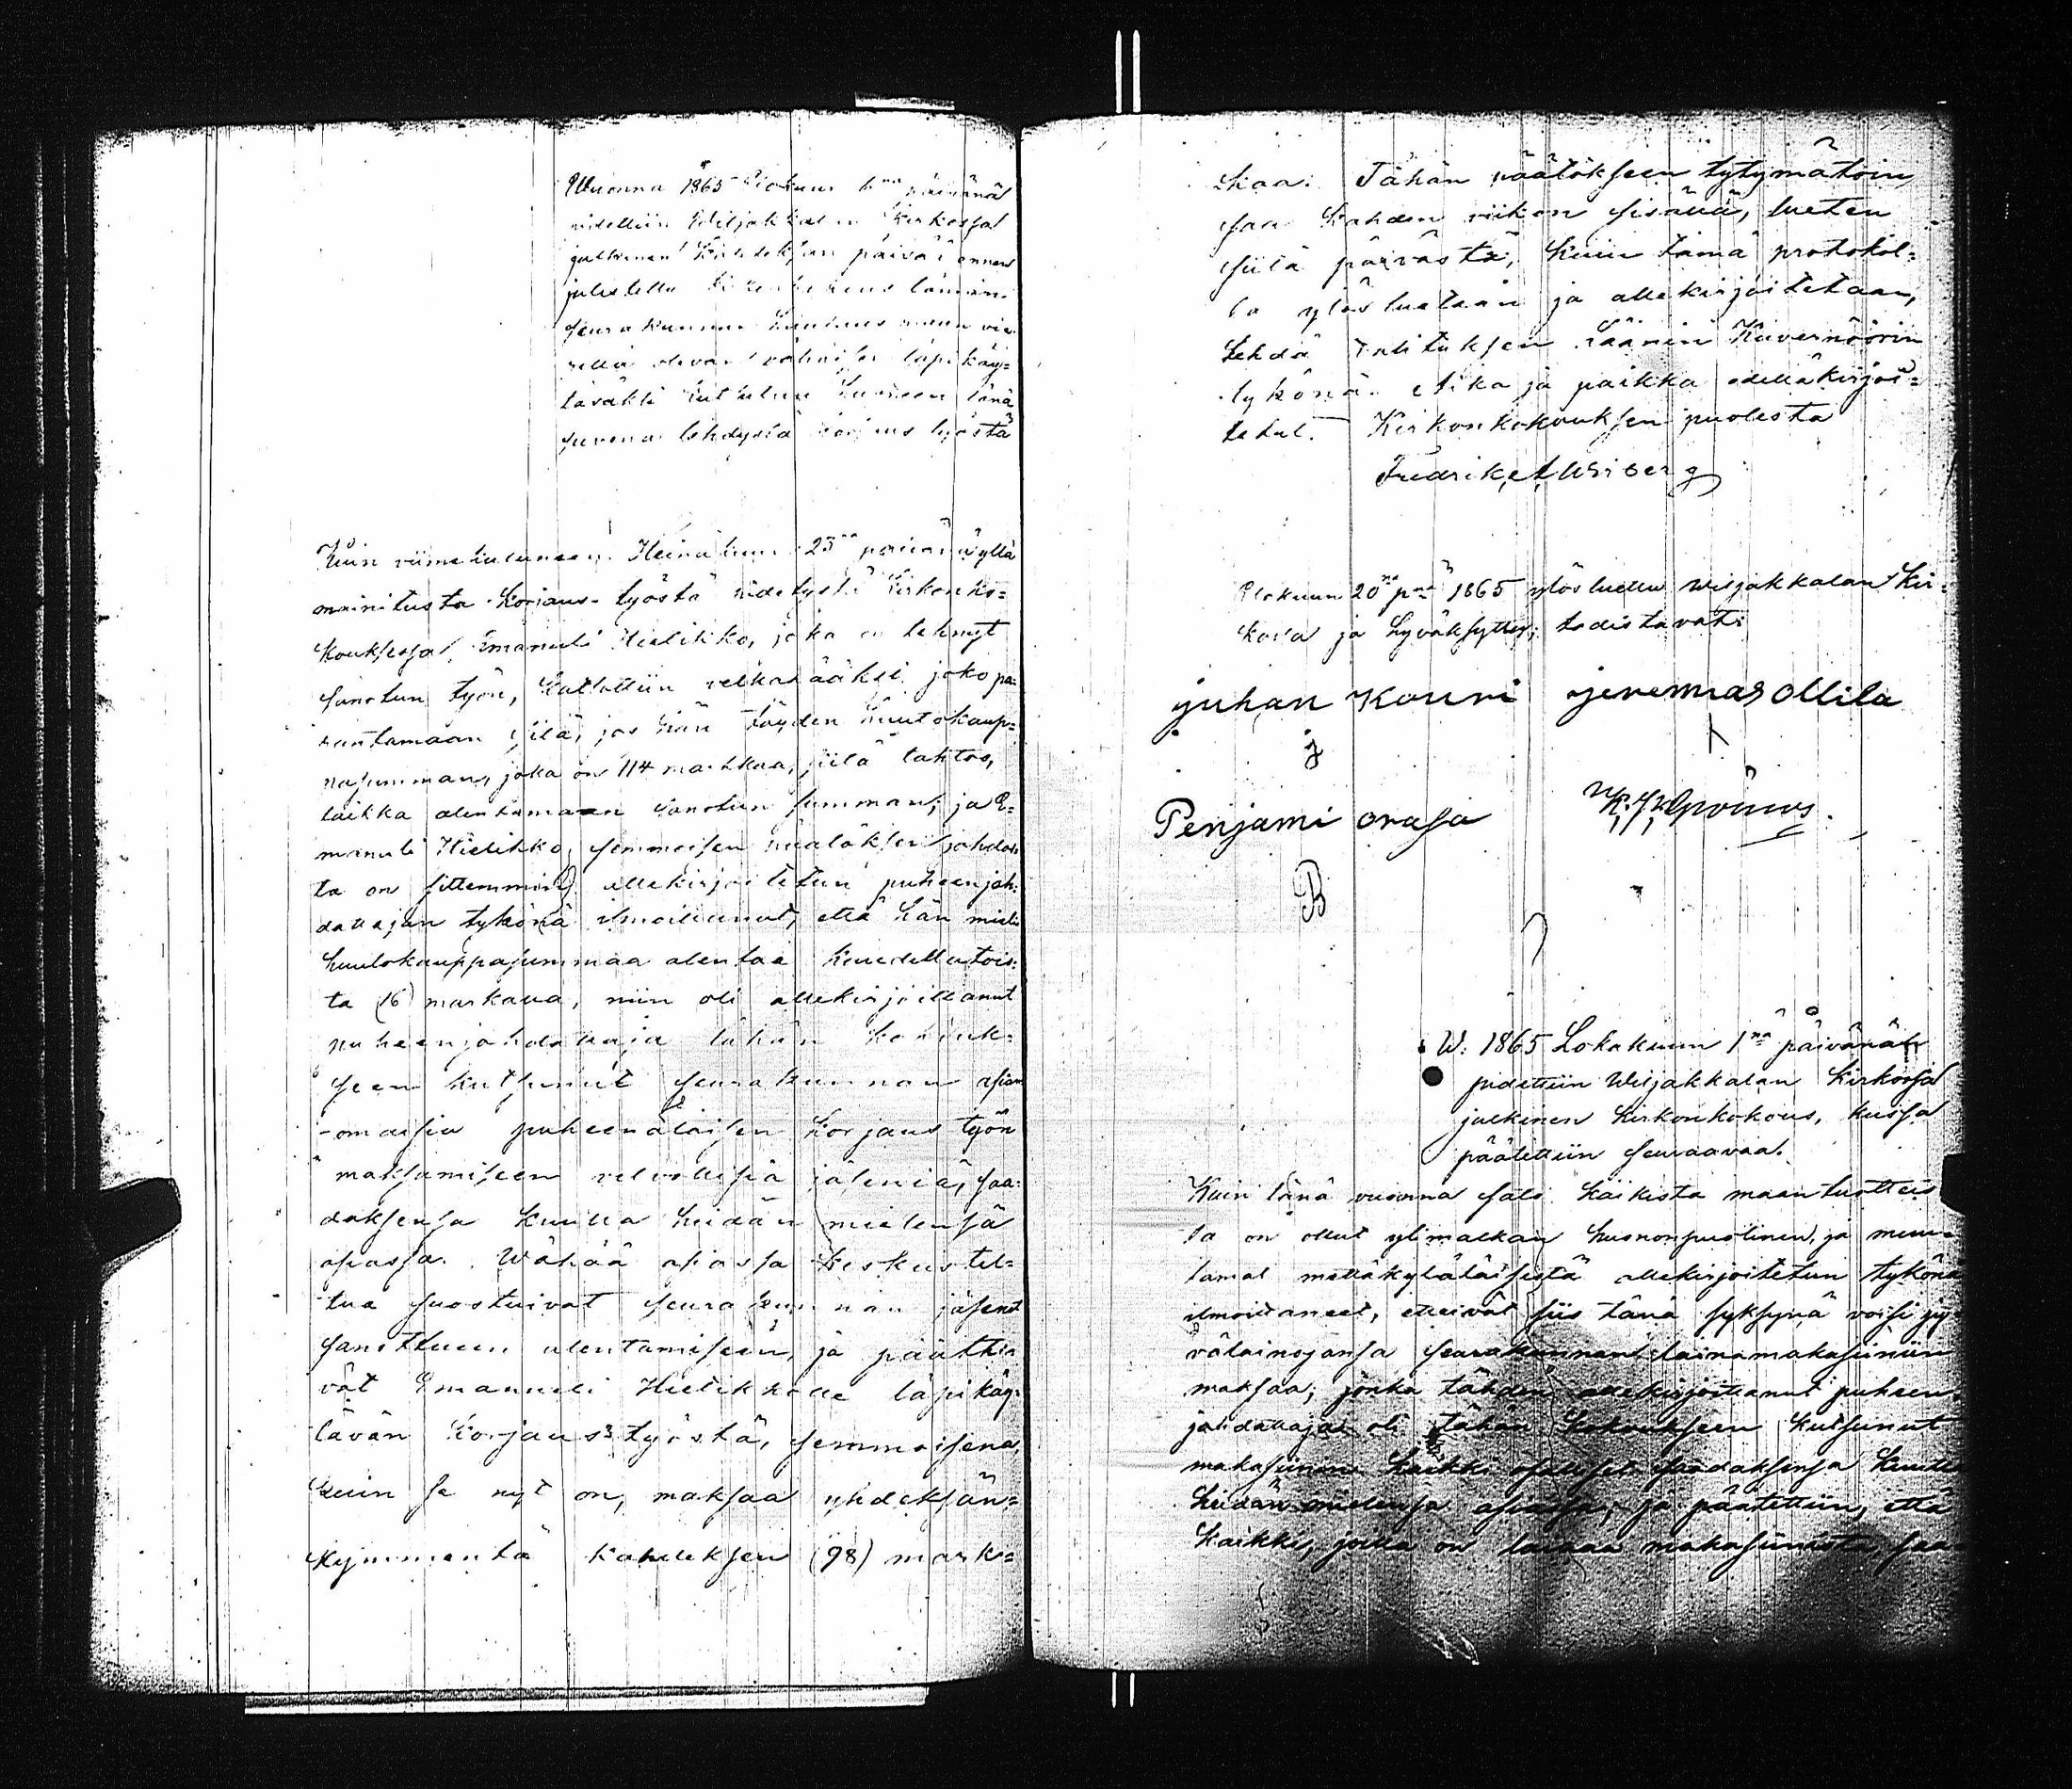 Wuonna 1865 Elokuun 6na päivänä
pidettiin Wiljakkalan Kirkossa
julkinen kahdeksan päivää ennen
julistettu
seurakunnan
rellä olevan läpikäy=
tävästi
suvena tehdystä korjaus työstä
Kuin viimekuluneen Heinäkuun 23na päivänä yllä
mainitusta Korjaus-työstä pidetystä Kirkonko=
kouksessa, Emanueli Hielikko, joka on tehnyt
sanotun työn, joko pa=
rantamaan sitä, jos hän täyden huutokaup=
pasumman, joka on 114 markkaa, siitä tahtoo,
taikka alentamaan sanotun summan; ja E=
manueli Hielikko, semmoisen päätöksen johdos=
ta on sittemmin allekirjoitetun puheenjoh=
dattajan tykönä ilmoittanut, että hän mieli
huutokauppasummaa alentaa kuudellatois=
ta (16) markalla, niin oli allekirjoittanut
puheenjohdattaja tähän kokouk=
seen kutsunut seurakunnan asian
-omaisia puheenalaisen Korjaus työn
maksamiseen velvollisia jäseniä, saa=
daksensa kuulla heidän mielensä
asiassa. Wähää asiassa keskustel=
tua suostuivat seurakunnan jäsenet
sanottuun alentamiseen, ja päätti=
vät Emanueli Hielikkolle läpikäy=
tävän Korjaus-työstä, semmoisena,
kuin se nyt on, maksaa yhdeksän=
kymmentä kahdeksan (98) mark=
kaa. Tähän päätökseen tytymätöin
saa kahden viikon sisällä, lueten
siitä päivästä, kuin tämä protokol=
la ylös luetaan ja allekirjoitetaan,
tehdä valituksen Läänin Kuvernöörin
tykönä. Aika ja paikka edelläkirjoi=
tetut. Kirkonkokouksen puolesta
Fredrik
Elokuun 20na pnä 1865 ylösluettu Wiljakkalan Kir=
kossa ja hyväksytty; todistavat:
juhan Kouri jeremias ollila
j
Penjami orasa
B
W: 1865 Lokakuun 1nä päivänä
pidettiin Wiljakkalan Kirkossa
julkinen Kirkonkokous, kussa
päätettiin seuraavaa.
Kuin tänä vuonna sato kaikista maantuotteis
ta on ollut ylimalkain huononpuolinen, ja muu=
tamat mettäkyläläisistä allekirjoitetun tykönä
ilmoittaneet, etteivät siis tänä syksynä voisi jy=
välainojansa seurakunnan lainamakasiiniin
maksaa; jonka tähden allekirjoittanut puheen=
johdattaja oli tähän kokoukseen kutsunut
makasiinin kaikki osalliset saadaksensa kuulla
heidän mielensä asiassa; ja päätettiin, että
kaikki, joilla on lainaa makasiinista, saa